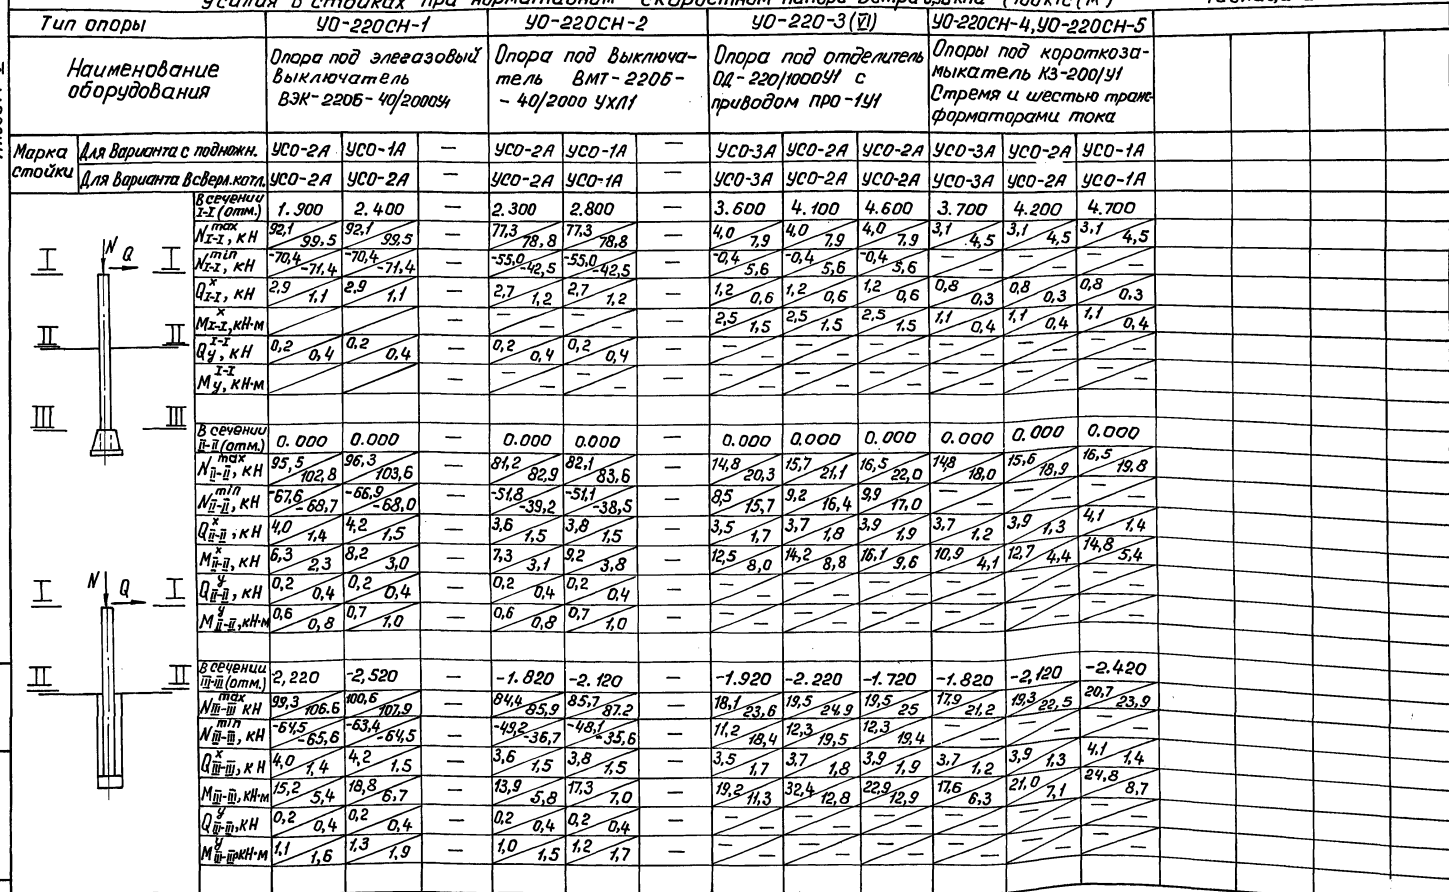 Усилия в стойках при нормативном скоростном напоре ветра
Тип опоры УО-220СН-1 УО-220СН-2 УО-220-3(VI) УО-220СН-4,УО-220СН-5
Наименование оборудования
Опора под элегазовый
выключатель
ВЭК-220Б-40/2000У1
Опора под выключа-
тель ВМТ-220Б-
-40/2000 УХЛ1
Опора под отделитель
ОД-220/1000У1 с
приводом ПРО-1У1
Опоры под короткоза-
мыкатель КЗ-200/У1
Стремя и шестью транс-
форматорами тока
Марка стойки
Для варианта с подножн. УСО-2А УСО-1А — УСО-2А УСО-1А — УСО-3А УСО-2А УСО-2А УСО-3А УСО-2А УСО-1А
Для варианта в сверл.котл. УСО-2А УСО-2А — УСО-2А УСО-1А — УСО-3А УСО-2А УСО-2А УСО-3А УСО-2А УСО-1А
В сечении I-I (отм.) 1.900 2.400 — 2.300 2.800 — 3.600 4.100 4.600 3.700 4.200 4.700
N max I-I, кН 92,1/99,5 92,1/99,5 — 77,3/78,8 77,3/78,8 — 4,0/7,9 4,0/7,9 4,0/7,9 3,1/4,5 3,1/4,5 3,1/4,5
N min I-I, кН -70,4/-71,4 -70,4/-71,4 — -55,0/-42,5 -55,0/-42,5 — -0,4/5,6 -0,4/5,6 -0,4/5,6 —/— —/— —/—
Q x I-I, кН 2,9/1,1 2,9/1,1 — 2,7/1,2 2,7/1,2 — 1,2/0,6 1,2/0,6 1,2/0,6 0,8/0,3 0,8/0,3 0,8/0,3
M x I-I, кН·м — —/— —/— — 2,5/1,5 2,5/1,5 2,5/1,5 1,1/0,4 1,1/0,4 1,1/0,4
Q I-I y, кН 0,2/0,4 0,2/0,4 — 0,2/0,4 0,2/0,4 — —/— —/— —/— —/— —/— —/—
M I-I y, кН·м — —/— —/— — —/— —/— —/— —/— —/— —/—
В сечении II-II (отм.) 0.000 0.000 — 0.000 0.000 — 0.000 0.000 0.000 0.000 0.000 0.000
N max II-II, кН 95,5/102,8 96,3/103,6 — 81,2/82,9 82,1/83,6 — 14,8/20,3 15,7/21,1 16,5/22,0 14,8/18,0 15,6/18,9 16,5/19,8
N min II-II, кН -67,6/-68,7 -66,9/-68,0 — -51,8/-39,2 -51,1/-38,5 — 8,5/15,7 9,2/16,4 9,9/17,0 —/— —/— —/—
Q x II-II, кН 4,0/1,4 4,2/1,5 — 3,6/1,5 3,8/1,5 — 3,5/1,7 3,7/1,8 3,9/1,9 3,7/1,2 3,9/1,3 4,1/1,4
M x II-II, кН 6,3/2,3 8,2/3,0 — 7,3/3,1 9,2/3,8 — 12,5/8,0 14,2/8,8 16,1/9,6 10,9/4,1 12,7/4,4 14,8/5,4
Q y II-II, кН 0,2/0,4 0,2/0,4 — 0,2/0,4 0,2/0,4 — —/— —/— —/— —/— —/— —/—
M y II-II, кН·м 0,6/0,8 0,7/1,0 — 0,6/0,8 0,7/1,0 — —/— —/— —/— —/— —/— —/—
В сечении III-III (отм.) -2,220 -2,520 — -1.820 -2.120 — -1.920 -2.220 -1.720 -1.820 -2,120 -2.420
N max III-III кН 99,3/106.6 100,6/107,9 — 84,4/85,9 85,7/87.2 — 18,1/23,6 19,5/24.9 19,5/25 17,9/21,2 19,3/22,5 20,7/23,9
N min III-III, кН -64,5/-65,6 -63,4/-64,5 — -49,2/-36,7 -48,1/-35,6 — 11,2/18,4 12,3/19,5 12,3/19,4 —/— —/— —/—
Q x III-III, кН 4,0/1,4 4,2/1,5 — 3,6/1,5 3,8/1,5 — 3,5/1,7 3,7/1,8 3,9/1,9 3,7/1,2 3,9/1,3 4,1/1,4
M III-III, кН·м 15,2/5,4 18,8/6,7 — 13,9/5,8 17,3/7,0 — 19,2/11,3 32,4/12,8 22,9/12,9 17,6/6,3 21,0/7,1 24,8/8,7
Q y III-III, кН 0,2/0,4 0,2/0,4 — 0,2/0,4 0,2/0,4 — —/— —/— —/— —/— —/— —/—
M y III-III, кН·м 1,1/1,6 1,3/1,9 — 1,0/1,5 1,2/1,7 — —/— —/— —/— —/— —/— —/—
N
I Q I
II II
III III
N
I Q I
II II